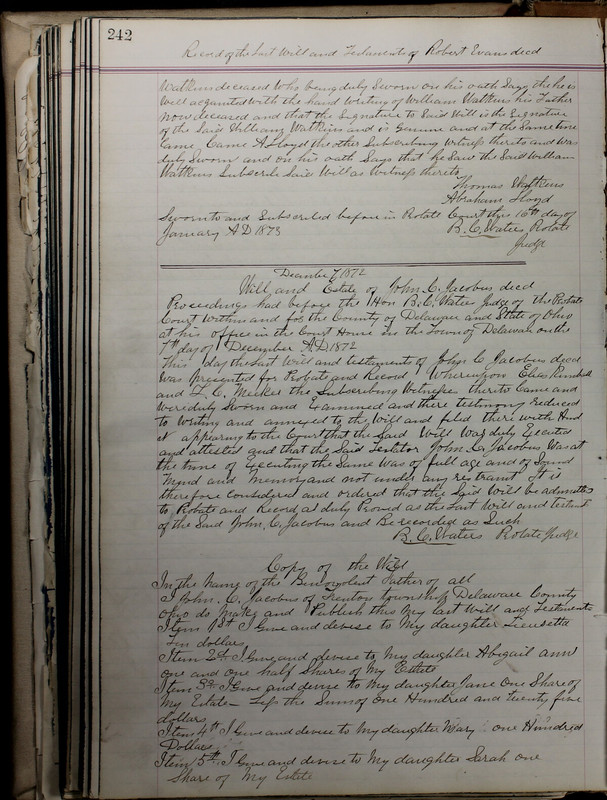 242
Record of the Last Will and Testament of Robert Evans decd
Watkins deceased who being duly Sworn on his oath Says the he is
Well acquinted with the hand writing of William Watkins his Father
now deceased and that the Signature to Said Will is the Signature
of the Said William Watkins and is Genuine and at the Same time
Came Came A Lloyd the other Subscribing Witness thereto and was
duly Sworn and on his oath Says that he Saw the Said William
Watkins Subscribe Said Will as Witness thereto
Thomas Watkins
Abraham Lloyd
Sworn to and Subscribed before in Probate Court this 16th day of
January A D 1873 B. C. Waters Probate
Judge
December 7 1872
Will and Estate of John C. Jacobus decd
Proceedings had before the Hon B. C. Waters Judge of the Probate
Court within and for the County of Delaware and State of Ohio
at his office in the Court House in the Town of Delaware on the
7th day of December A D 1872
This day the Last Will and testament of John C Jacobus decd
was Presented for Probate and Record Whereupon Elias
and C. Meeker the Subscribing Witnesses thereto Came and
were duly Sworn and Examined and there testimony reduced
to writing and annexed to the Will and filed there with And
it appearing to the Court that the Said Will was duly Executed
and attested and that the Said Testator John C. Jacobus was at
the time of Executing the Same was of full age and of Sound
Mind and Memory and not under any restraint It is
therefore Considered and ordered that the Said Will be admitted
to Probate and Record as duly Proved as the Last Will and
of the Said John, C, Jacobus and Be recorded as Such
B. C. Waters Probate Judge
Copy of the Will
In the Name of the Benevolent Father of all
I John. C. Jacobus of Trenton township Delaware County
Ohio do Make and Publish this My last Will and Testament
Item 1st I Give and devise to My daughter
dollars
Item 2d I Give and devise to My daughter Abigail ann
one and one half Shares of My Estate
Item 3d I Give and devise to My daughter Jane one Share of
My Estate - Less the Sum of One Hundred and twenty five
dollars
Item 4th I Give and devise to My daughter Mary one Hundred
Dollars
Item 5th I Give and devise to My daughter Sarah one
Share of My Estate